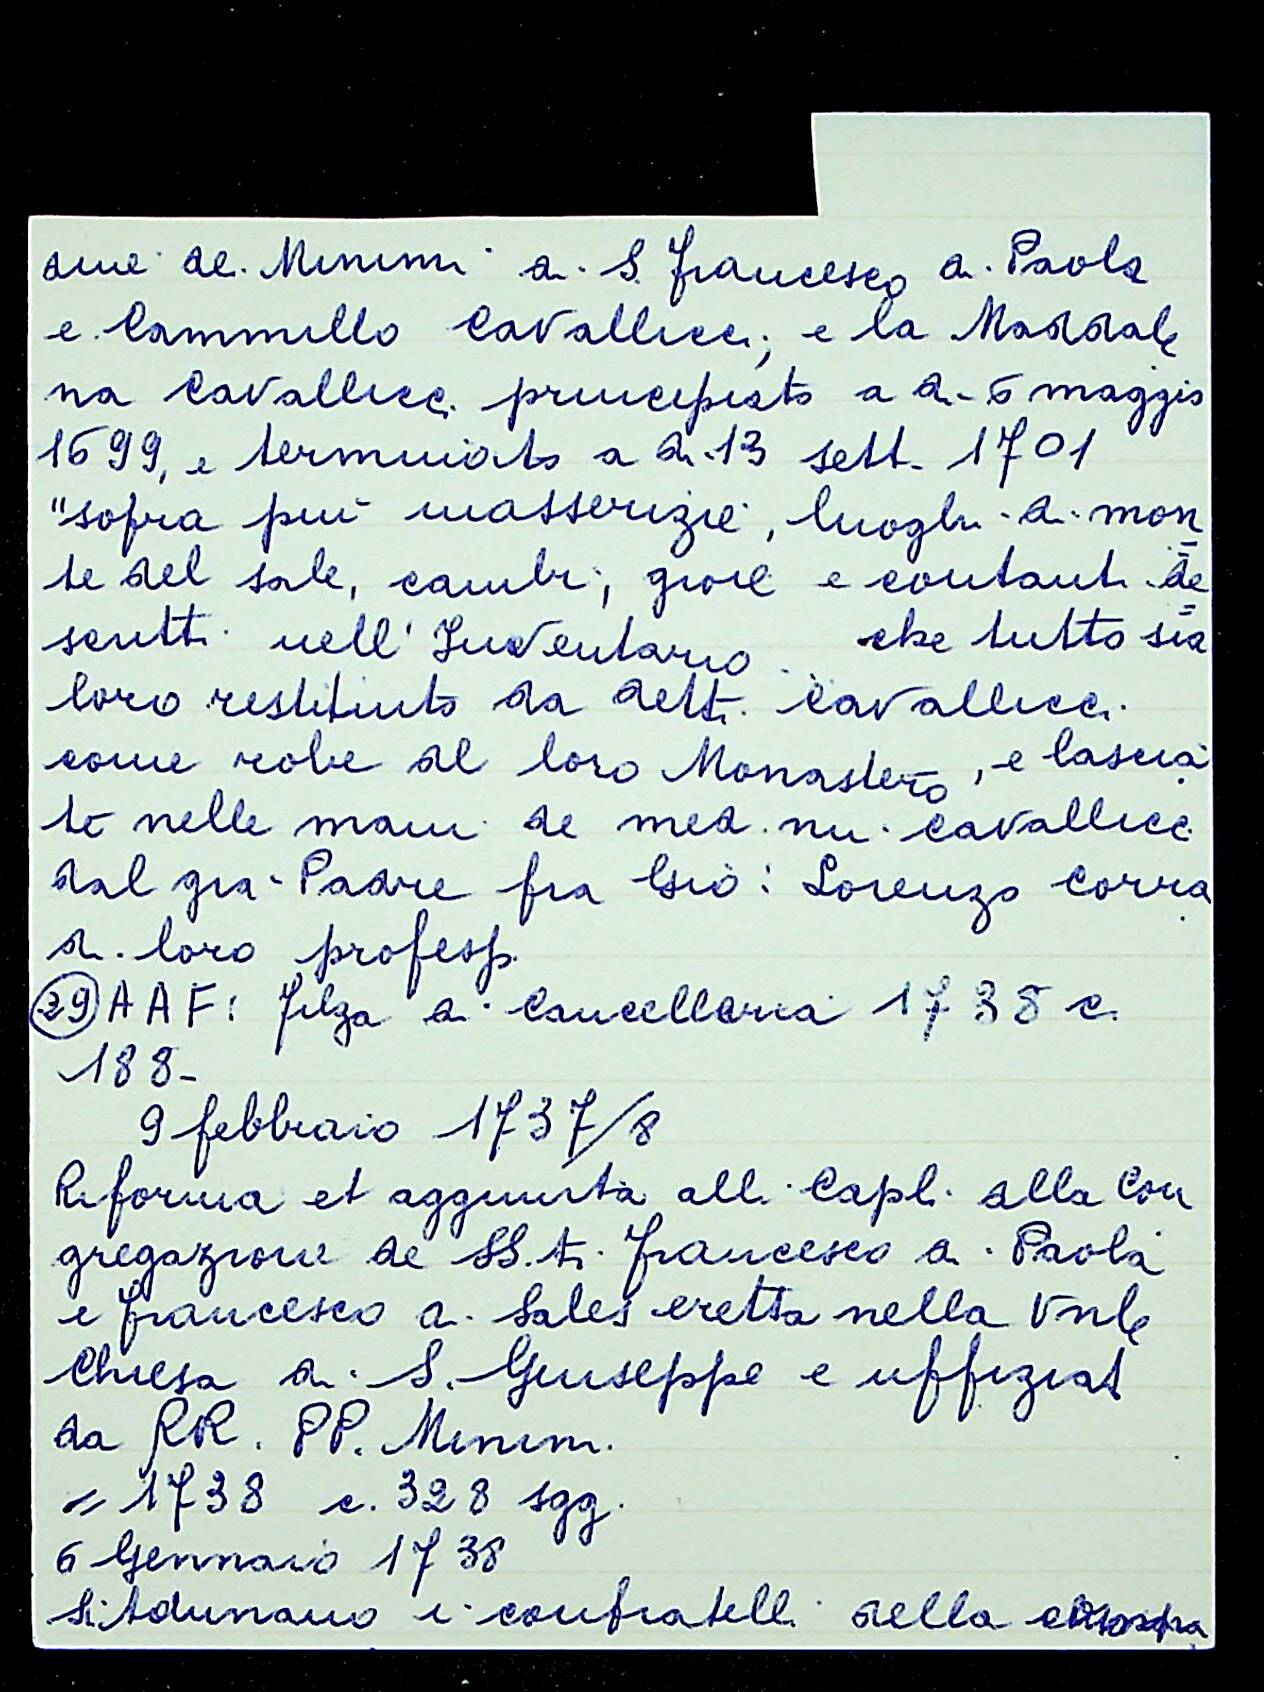 dine de Minimi di S. Francesco di Paola
e Cammillo Cavallicci; e la Maddale
na Cavallicci principiato a di 6 maggio
1699, e terminato a di 13 sett. 1701
"sopra più masserizie, luoghi di mon
te del sale, cambi, gioie e contanti de
scritti nell'Inventario. che tutto sia
loro restituito da detti Cavallicci.
come robe del loro Monastero, e lascia
te nelle mani de med.mi Cavallicci
dal già Padre fra Gio: Lorenzo Corra
di loro profess.
(29) AAF: Filza di Cancelleria 1738 c.
188-
9 febbraio 1737/8
Riforma et aggiunta alli Capli. alla Con
gregazione de SS.ti Francesco di Paola
e Francesco di Sales eretta nella Vnle
Chiesa di S. Giuseppe e uffiziat
da RR. PP. Minimi.
= 1738 c. 328 sgg.
6 Gennaio 1738
Si Adunano i confratelli della